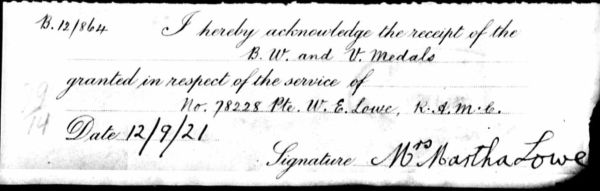 B.12/864 I hereby acknowledge the receipt of the
B. W. and V. Medals
granted in respect of the service of
No. 78228 Pte. W. E. Lowe, R.A.M.C.
Date 12/9/21
Signature Mrs Martha Lowe